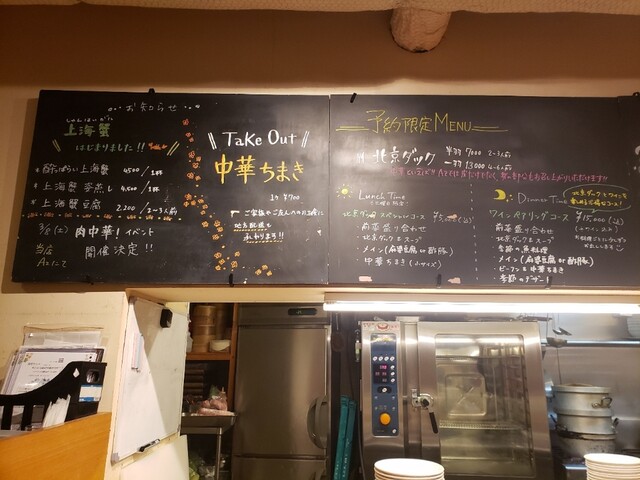 お知らせ
しゃんはいがに
上海蟹
はじまりました!!
酔っぱらい上海蟹 4500/1杯
上海蟹 姿蒸し 4,500/1杯
上海蟹豆腐 2,200/2〜3人前
肉中華!イベント
当店 開催決定!!
Aにて
Take Out
中華ちまき
1ヶ ¥700
ご家族やご友人の
地方配送も
承ります!!
予約限定MENU
北京ダック 半羽 7000 2-3人前
一羽 13000 4-6人前
Lunch Time
北京ダック スペシャルコース
前菜盛り合わせ
北京ダック & スープ
メイン(麻婆豆腐 or 酢豚)
中華ちまき(小サイズ)
Dinner Time
北京ダックとワインを
ワインペアリングコース ¥15,000(込)
前菜盛り合わせ
北京ダック & スープ
季節の魚料理
メイン(麻婆豆腐 or 酢豚)
ビーフン & 中華ちまき
季節のデザート